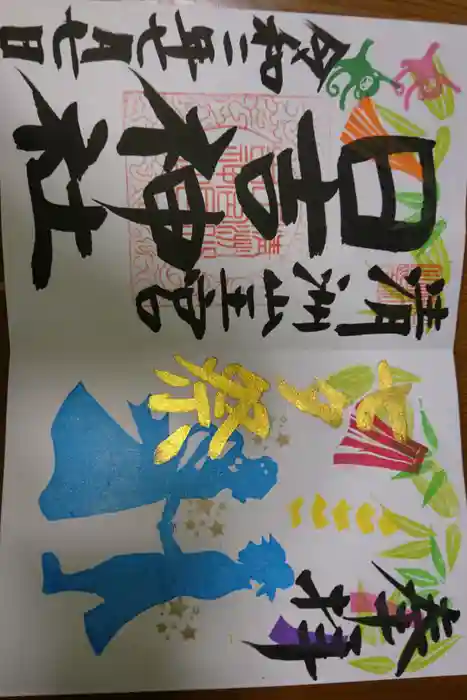 奉拝
七夕祭
清洲山王宮
日吉神社
令和二年七月七日